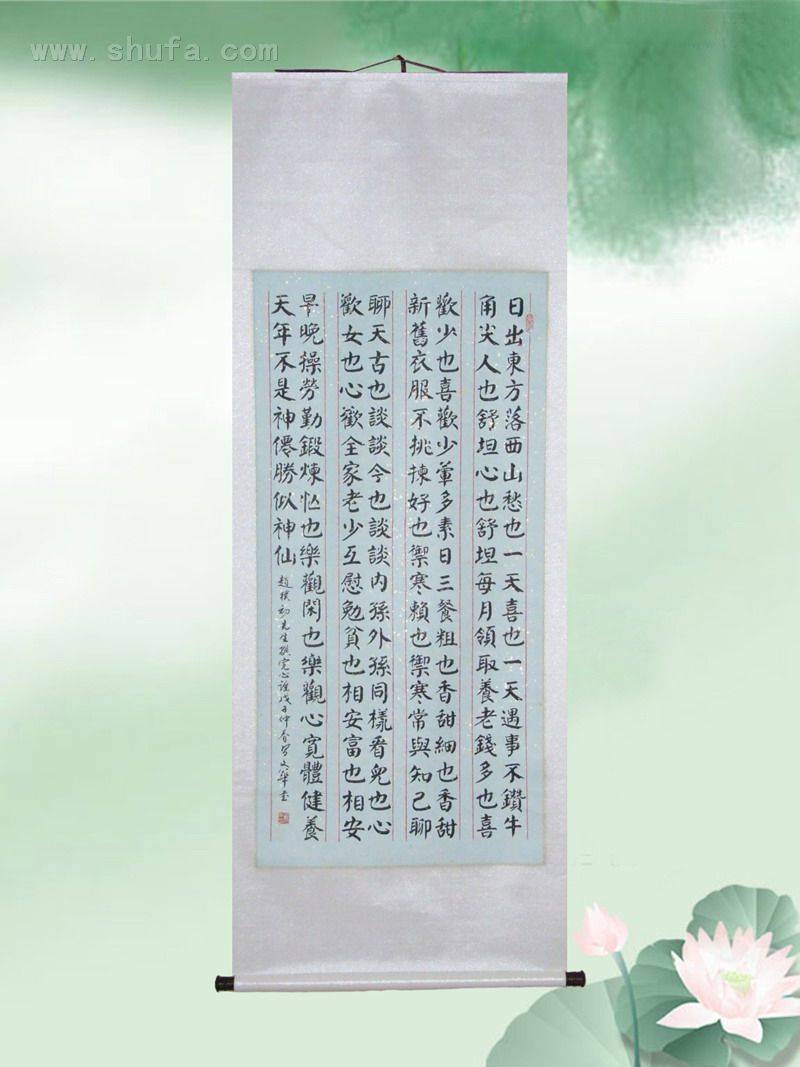 www.shufa.com
日出東方落西山愁也一天喜也一天遇事不鑽牛
角尖人也舒坦心也舒坦每月領取養老錢多也喜
歡少也喜歡少葷多素日三餐粗也香甜細也香甜
新舊衣服不挑揀好也禦寒賴也禦寒常與知己聊
聊天古也談談今也談談内孫外孫同樣看兒也心
歡女也心歡全家老少互慰勉貧也相安富也相安
早晚操勞勤鍛煉忙也樂觀閑也樂觀心寬體健養
天年不是神僊勝似神仙
趙樸初先生撰寬心謠戊子仲春文華書